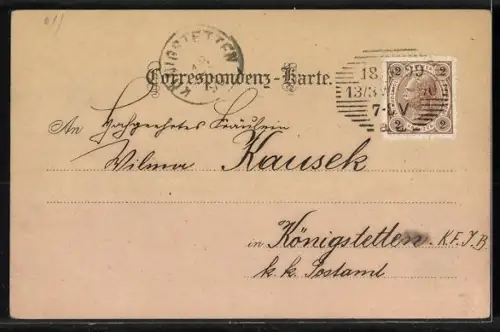 KÖNIGSTETTEN
Correspondenz-Karte.
18 99
13/3
7-
V
2 2
2 2
An Hochgeehrtes Fräulein
Wilma Kausek
in Königstetten K.F.J.B.
k.k. Postamt